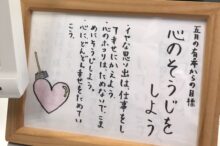 五月の有楽からの目標
心のそうじを
しよう
・イヤな思い出は、仕事をし
て幸せにかえよう。
・心のホコリは、ためないで、こま
めにそうじしよう。
・心に、どんどん幸せをためてい
こう。